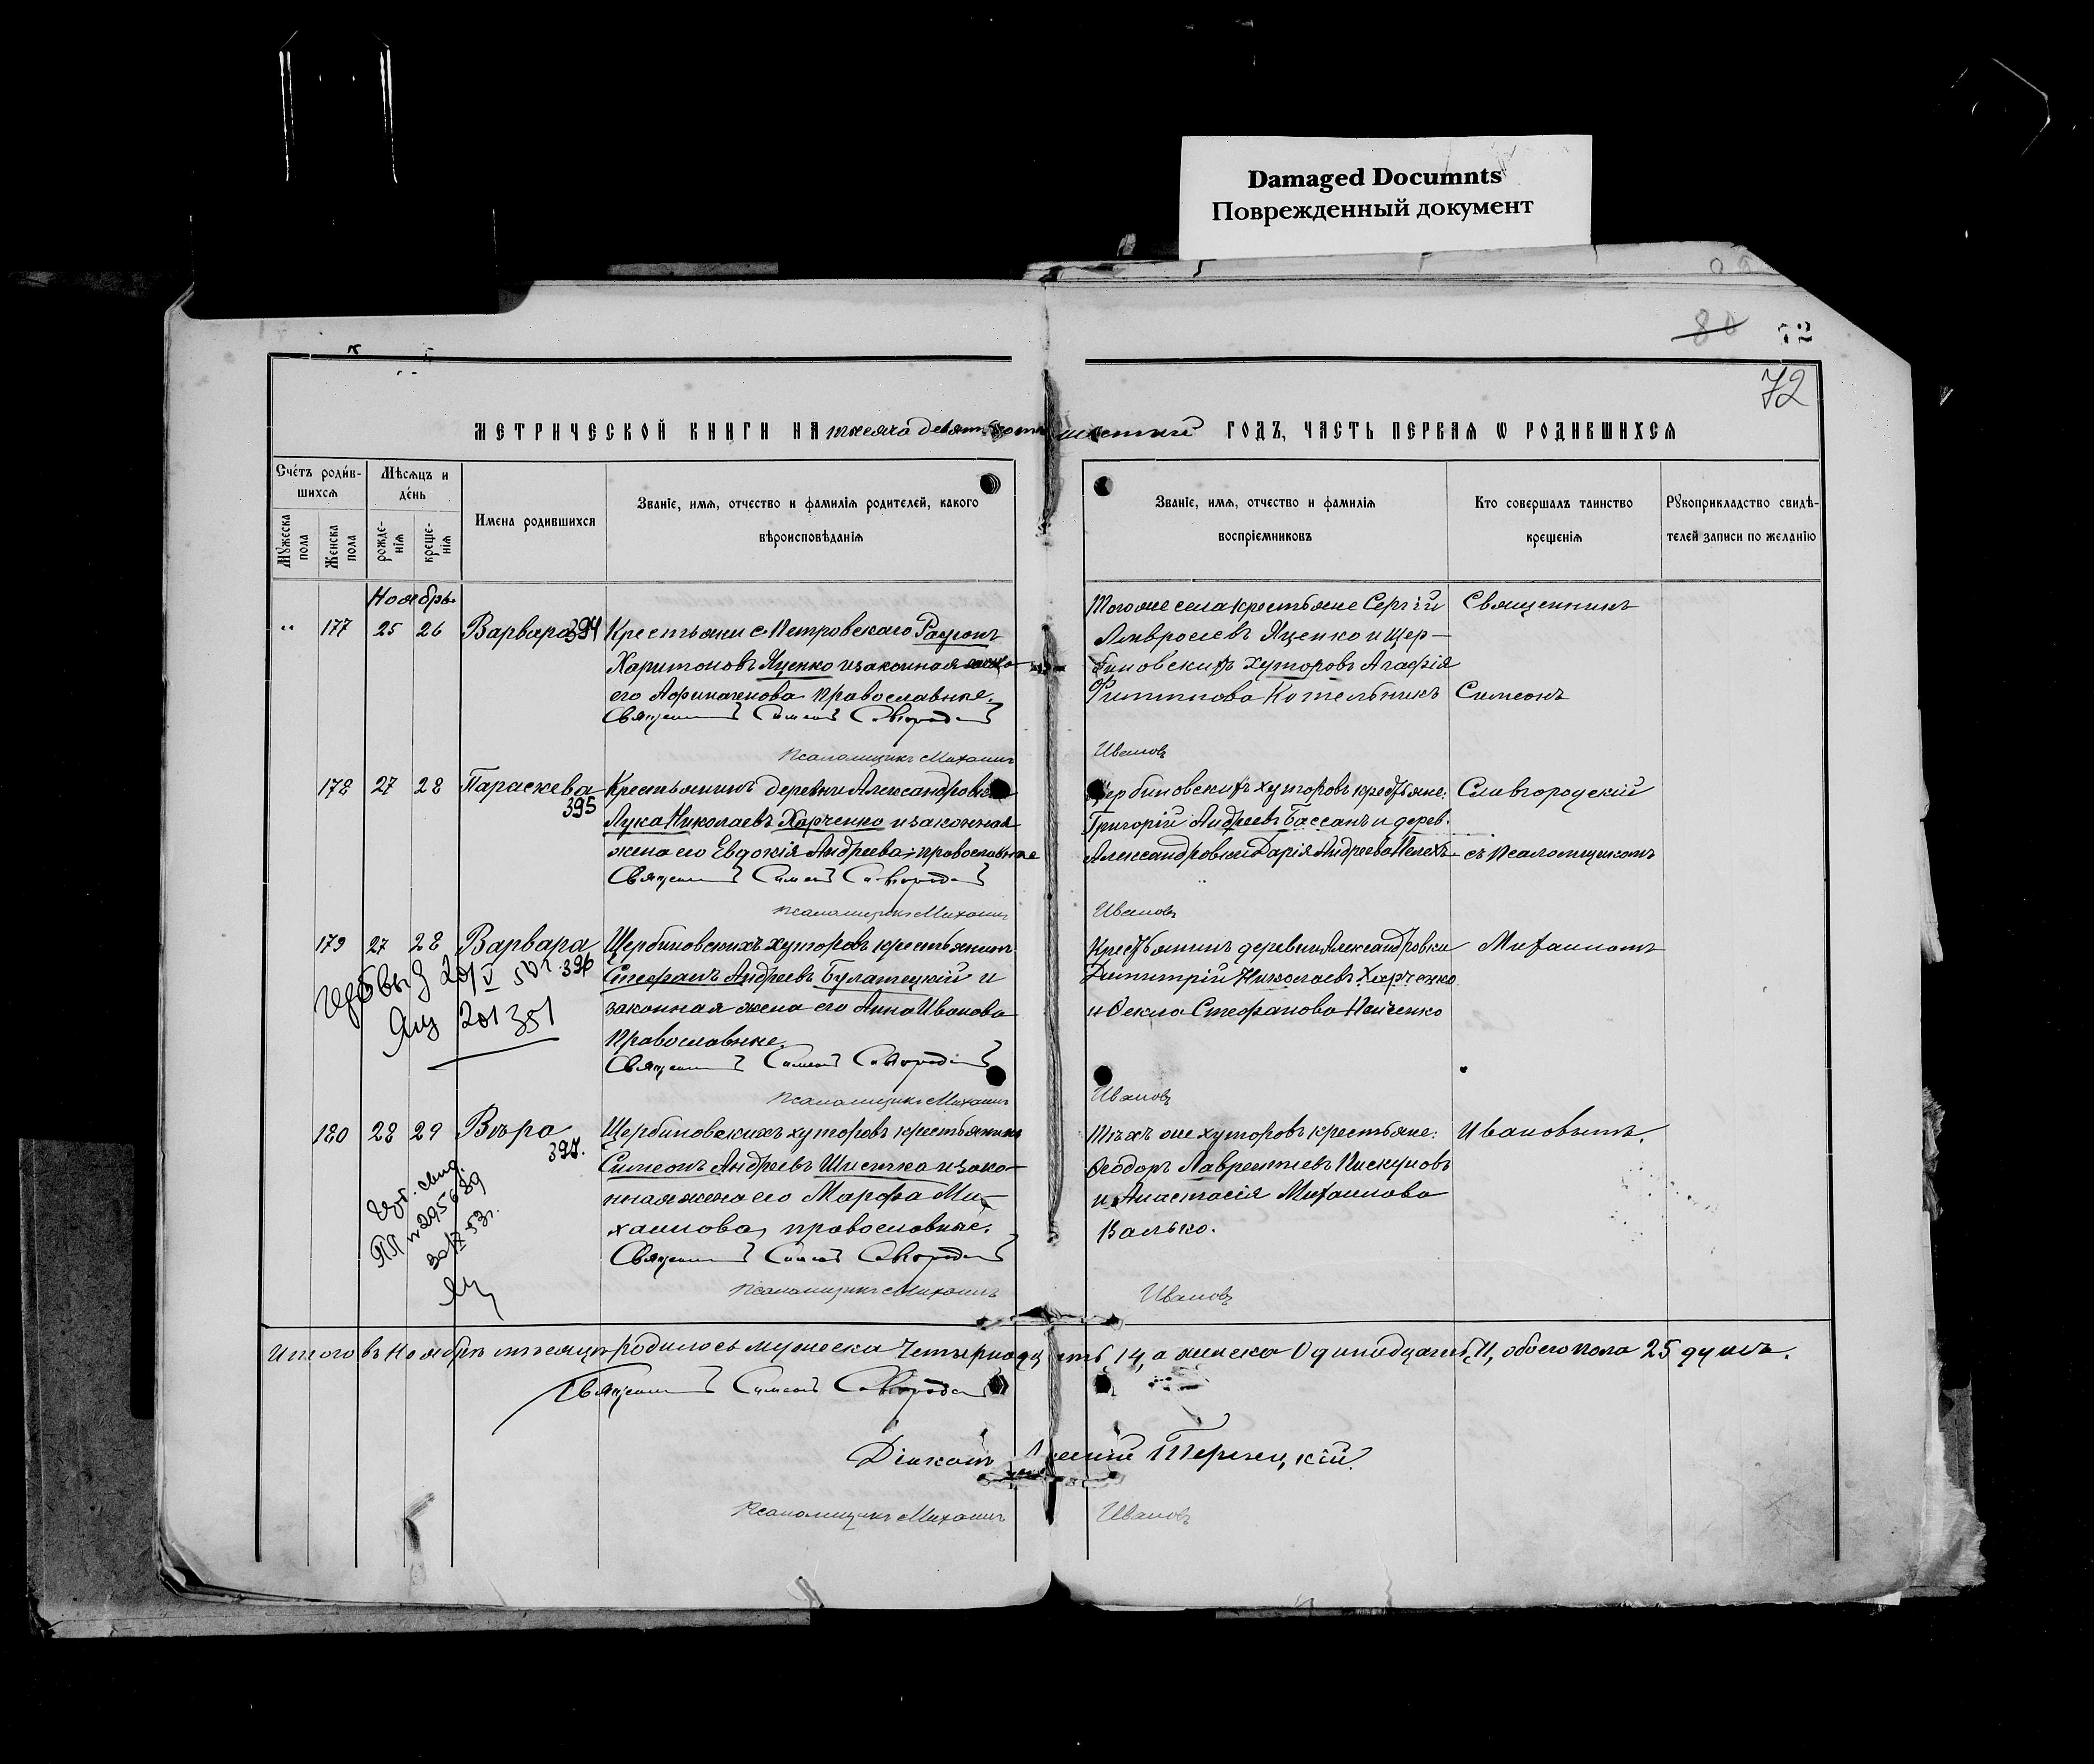 Damaged Documnts
Поврежденный документ
80 72
72
МЕТРИЧЕСКОЙ КНИГИ НА тысяча девятьсотъ шестый ГОДЪ, ЧАСТЬ ПЕРВАЯ Ѡ РОДИВШИХСЯ
Счетъ родившихся
Мужеска пола
Женска пола
Мѣсяцъ и день
рожденія
крещенія
Имена родившихся
Званіе, имя, отчество и фамилія родителей, какого вѣроисповѣданія
Званіе, имя, отчество и фамилія воспріемниковъ
Кто совершалъ таинство крещенія
Рукоприкладство свидѣтелей записи по желанію
Ноябрь.
„ 177 25 26 Варвара 394
Крестьяни с. Петровскаго
Харитоновъ Яценко и законная жена
его православные.
Священникъ Симеонъ Славгородскій
Псаломщикъ Михаилъ Ивановъ
Того же села крестьяне Сергій
Амвросіевъ Яценко и Щер-
биновскихъ хуторовъ Агафія
Филиппова Котельникъ
178 27 28 Параскева 395
Крестьянинъ деревни Александровки
Лука Николаевъ Харченко и законная
жена его Евдокія Андреева, православные
Священникъ Симеонъ Славгородскій
Псаломщикъ Михаилъ Ивановъ
Щербиновскихъ хуторовъ крестьяне:
Григорій Андреевъ Бассанъ и дерев.
Александровки Дарія Андреева
179 27 28 Варвара 396
Щербиновскихъ хуторовъ крестьянинъ
Стефанъ Андреевъ Булатецкій и
законная жена его Анна Иванова
православные.
Священникъ Симеонъ Славгородскій
Псаломщикъ Михаилъ Ивановъ
Крестьянинъ деревни Александровки
Димитрій Николаевъ Харченко
и Ѳекла Стефанова
201351
180 28 29 Вѣра 397.
Щербиновскихъ хуторовъ крестьянинъ
Симеонъ Андреевъ и зако-
нная жена его Марфа Ми-
хаилова, православные.
Священникъ Симеонъ Славгородскій
Псаломщикъ Михаилъ Ивановъ
Тѣхъ же хуторовъ крестьяне:
Ѳеодоръ Лаврентіевъ Пискуновъ
и Анастасія Михаилова
Валько.
Священникъ
Симеонъ
Славгородскій
съ псаломщикомъ
Михаиломъ
Ивановымъ.
Итого въ Ноябрѣ мѣсяцѣ родилось мужеска Четырнадцать, 14, а женска Одинадцать, 11, обоего пола 25 душъ.
Священникъ Симеонъ Славгородскій
Діаконъ
Псаломщикъ Михаилъ Ивановъ